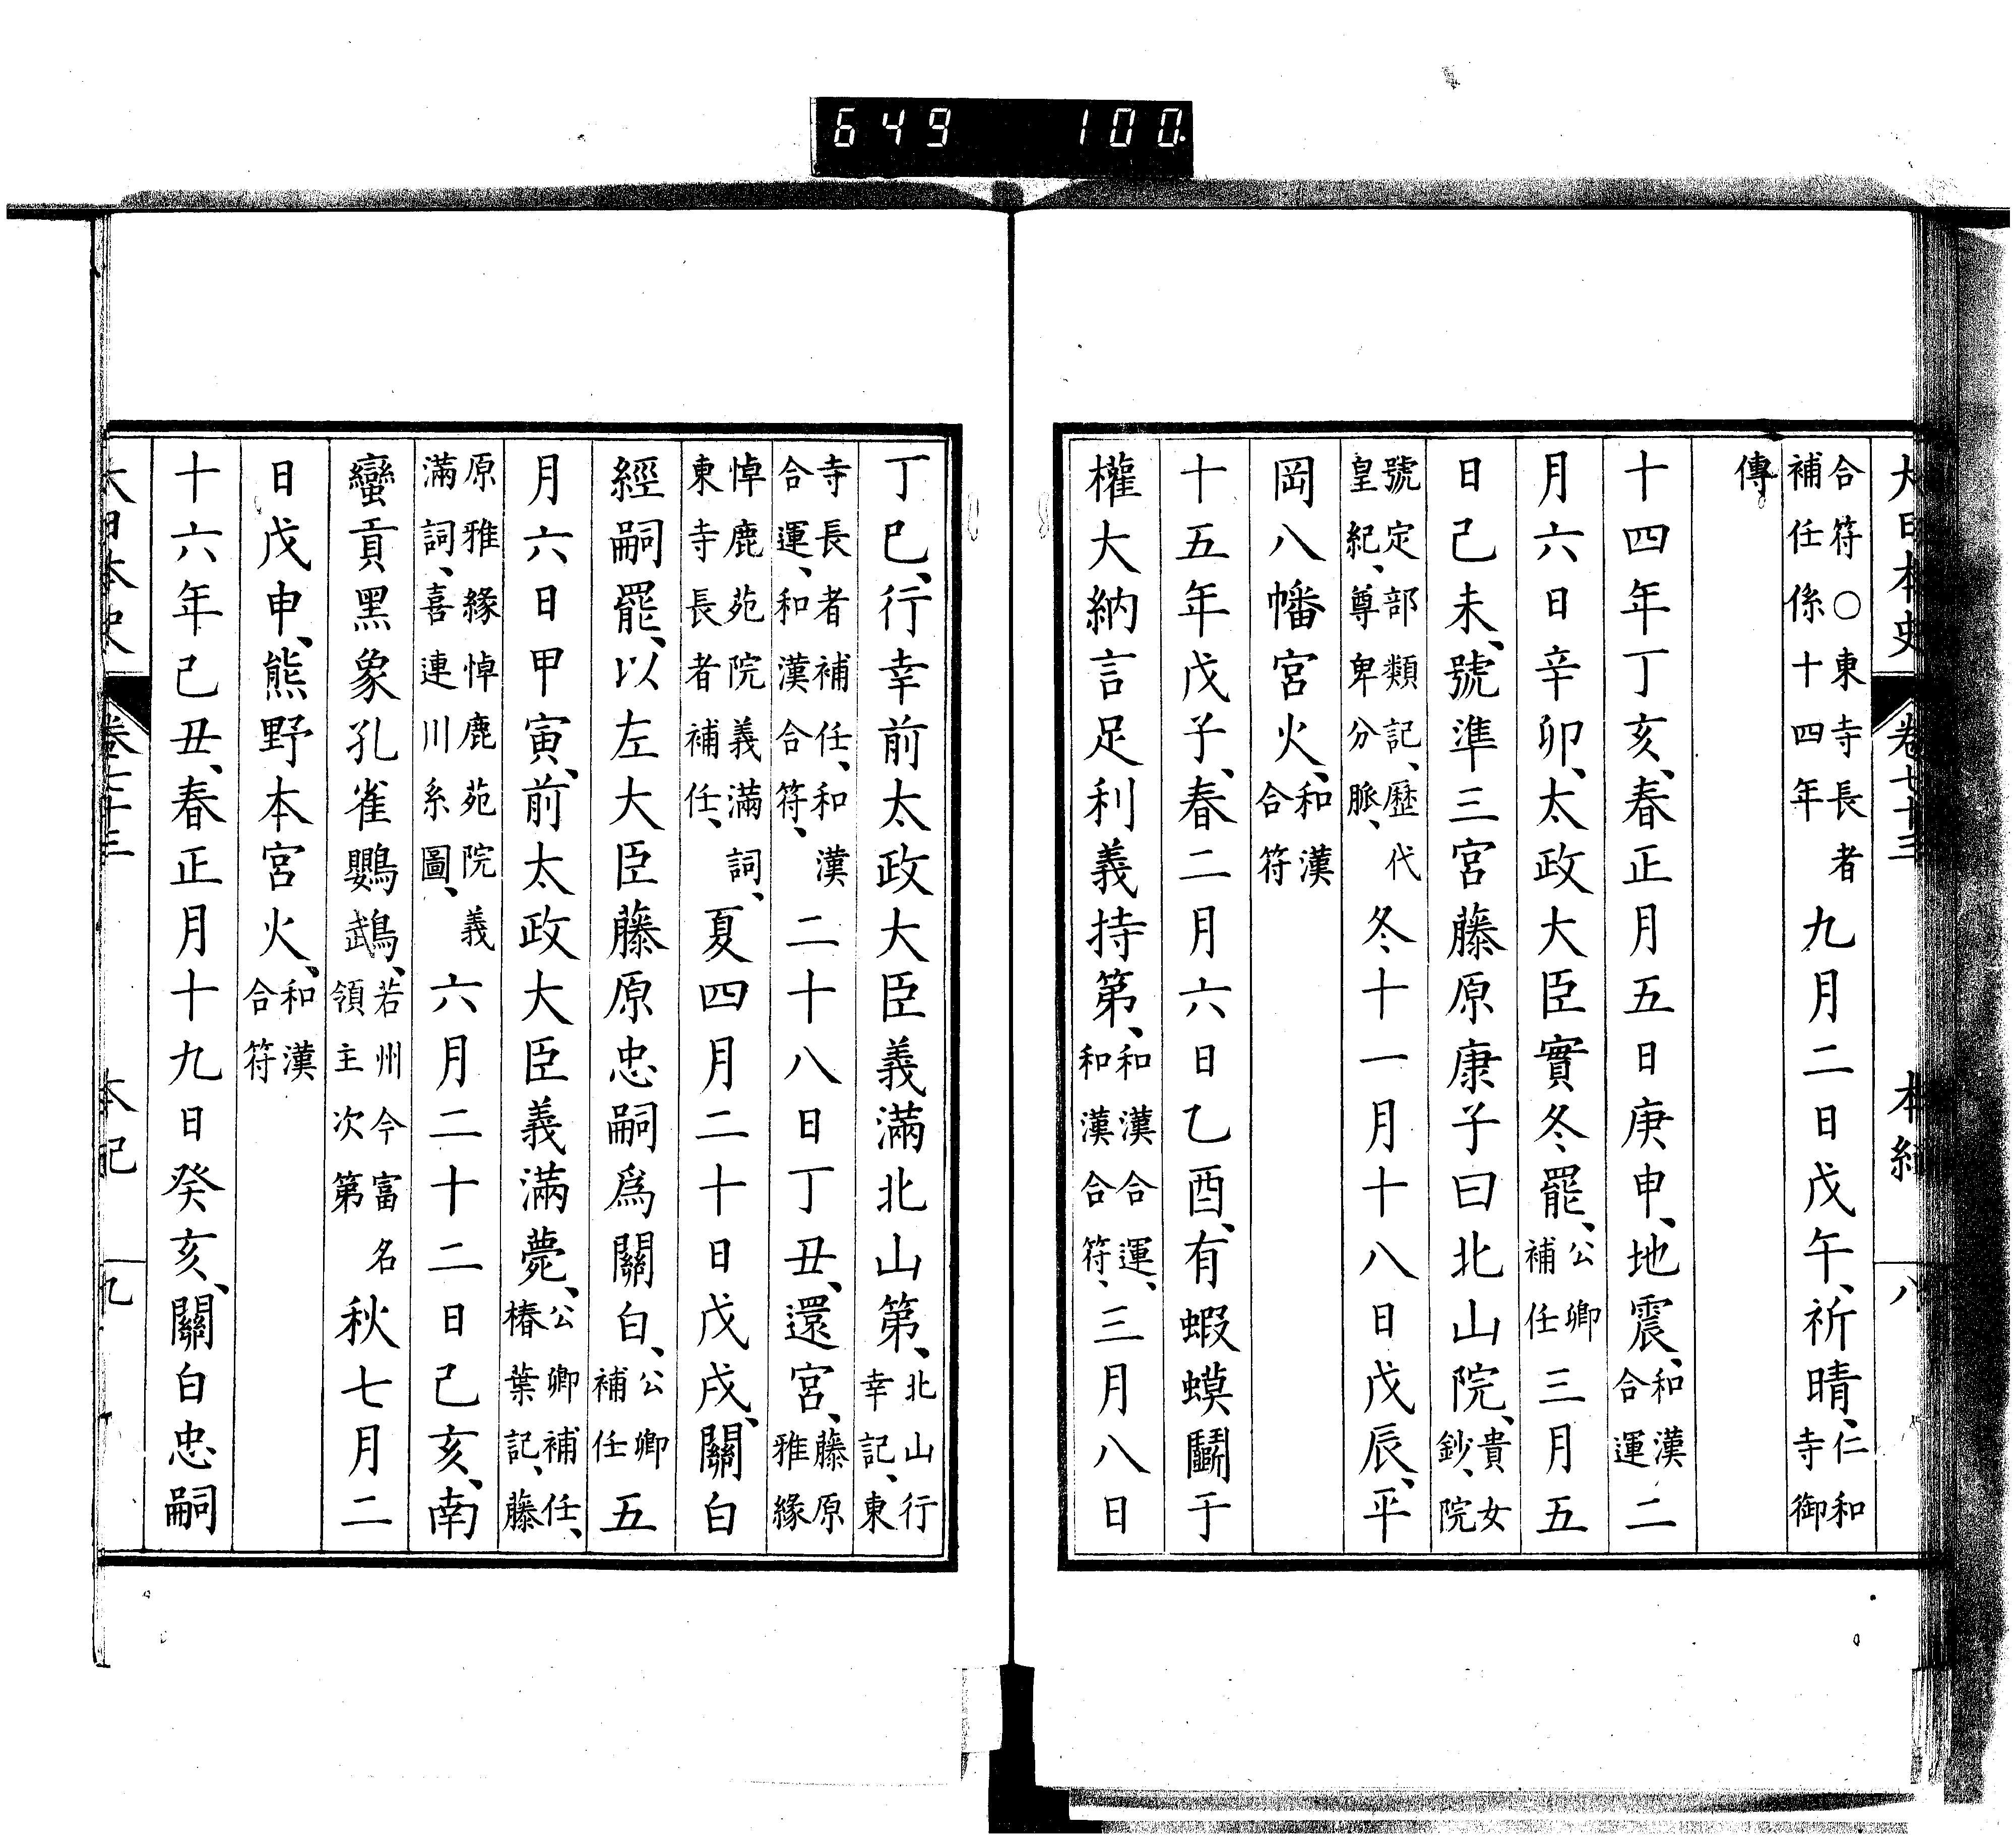 649 100.
大日本史 卷七十三 本紀 八
合符○東寺長者補任係十四年九月二日戊午、祈晴、仁和寺御
傳
十四年丁亥、春正月五日庚申、地震、和漢合運二
月六日辛卯、太政大臣實冬罷、公卿補任三月五
日己未、號準三宮藤原康子曰北山院、貴女鈔、院
號定部類記、歷代皇紀、尊卑分脈、冬十一月十八日戊辰、平
岡八幡宮火、和漢合符
十五年戊子、春二月六日乙酉、有蝦蟆鬭于
權大納言足利義持第、和漢合運、和漢合符、三月八日
丁巳、行幸前太政大臣義滿北山第、北山行幸記、東
寺長者補任、和漢合運、和漢合符、二十八日丁丑、還宮、藤原雅緣
悼鹿苑院義滿詞、東寺長者補任、夏四月二十日戊戌、關白
經嗣罷、以左大臣藤原忠嗣爲關白、公卿補任五
月六日甲寅、前太政大臣義滿薨、公卿補任、椿葉記、藤
原雅緣悼鹿苑院義滿詞、喜連川系圖、六月二十二日己亥、南
蠻貢黑象孔雀鸚鵡、若州今富名領主次第秋七月二
日戊申、熊野本宮火、和漢合符
十六年己丑、春正月十九日癸亥、關白忠嗣
大日本史 卷七十三 本紀 九